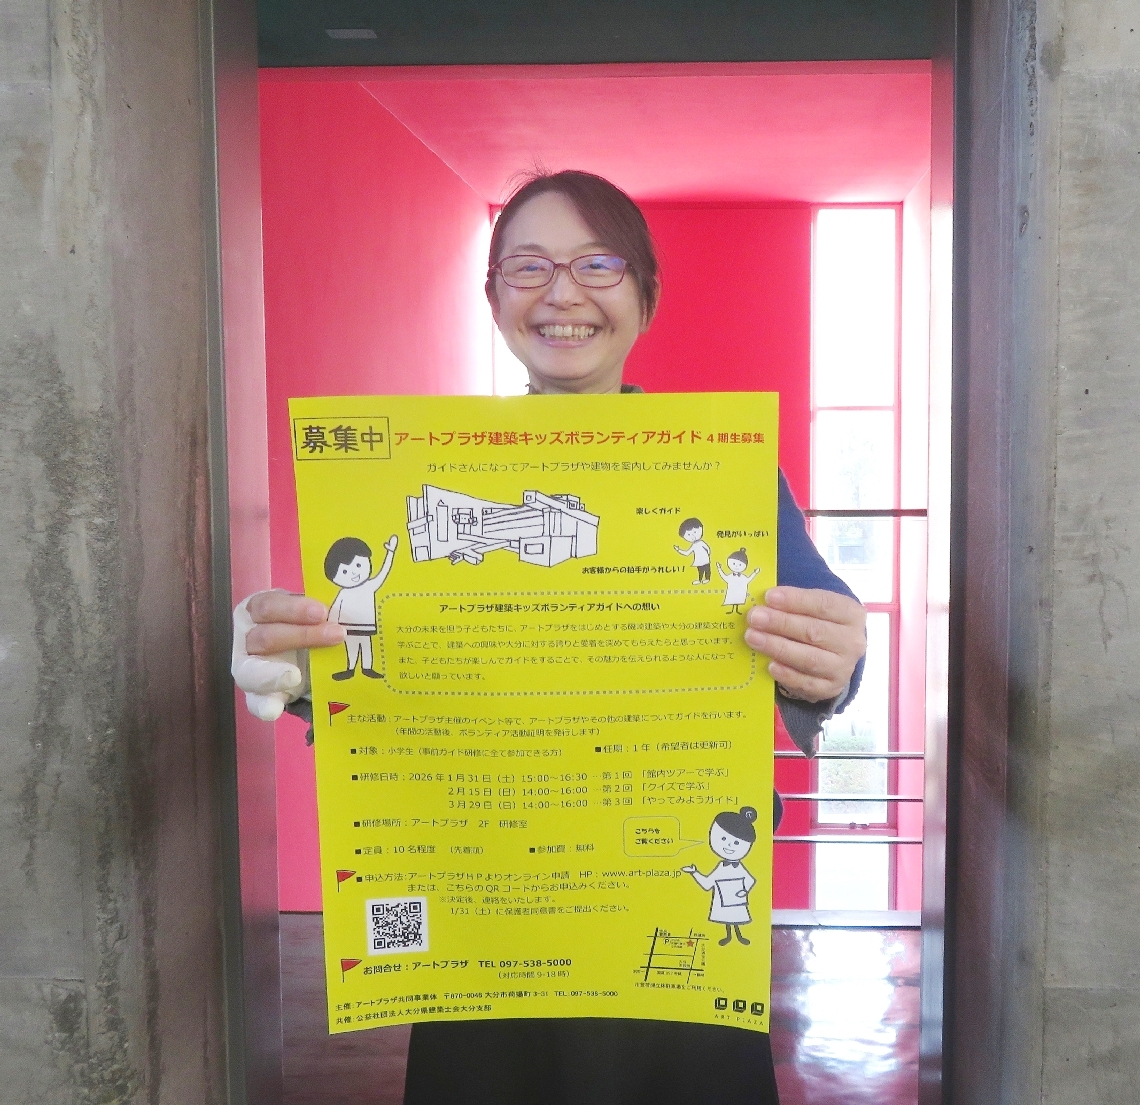 募集中 アートプラザ建築キッズボランティアガイド 4期生募集
ガイドさんになってアートプラザや建物を案内してみませんか?
楽しくガイド
発見がいっぱい
お客様からの拍手がうれしい!
アートプラザ建築キッズボランティアガイドへの想い
大分の未来を担う子どもたちに、アートプラザをはじめとする磯崎建築や大分の建築文化を
学ぶことで、建築への興味や大分に対する誇りと愛着を深めてもらえたらと思っています。
また、子どもたちが楽しんでガイドをすることで、その魅力を伝えられるような人になって
欲しいと願っています。
主な活動:アートプラザ主催のイベント等で、アートプラザやその他の建築についてガイドを行います。
(年間の活動後、ボランティア活動証明を発行します)
■対象:小学生(事前ガイド研修に全て参加できる方) ■任期:1年(希望者は更新可)
■研修日時:2026年1月31日(土)15:00~16:30 …第1回 「館内ツアーで学ぶ」
2月15日(日)14:00~16:00 …第2回 「クイズで学ぶ」
3月29日(日)14:00~16:00 …第3回 「やってみようガイド」
■研修場所:アートプラザ 2F 研修室
こちらを
ご覧ください
■定員:10名程度 (先着順) ■参加費:無料
■申込方法:アートプラザHPよりオンライン申請 HP:www.art-plaza.jp
または、こちらのQRコードからお申込みください。
※決定後、連絡をいたします。
1/31(土)に保護者同意書をご提出ください。
お問合せ:アートプラザ TEL 097-538-5000
(対応時間 9-18時)
主催:アートプラザ共同事業体 〒870-0046 大分市荷揚町3-31 TEL:097-538-5000
共催:公益社団法人大分県建築士会大分支部
ART PLAZA